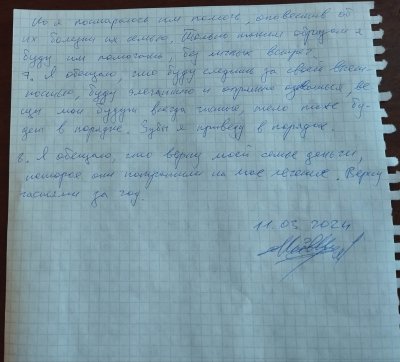 Но я постараюсь им помочь, оповестив об
их болезни их семью. Только таким образом я
буду им помогать, без личных встреч.
7. Я обещаю, что буду следить за своей внеш-
ностью, буду элегантно и опрятно одеваться, ве-
щи мои будут всегда чистые, тело тоже бу-
дет в порядке. Зубы я приведу в порядок.
8. Я обещаю, что верну моей семье деньги,
которые они потратили на мое лечение. Верну
частями за год.
11.03.2024